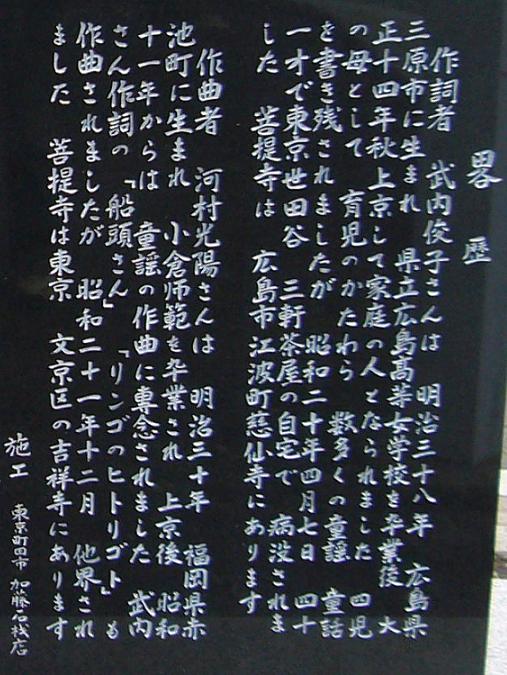 畧歴
作詞者　武内俊子さんは　明治三十八年　広島県
三原市に生まれ　県立広島高等女学校を卒業後　大
正十四年秋上京して家庭の人となられました　四児
の母として　育児のかたわら　数多くの童謡　童話
を書き残されましたが　昭和二十年四月七日　四十
一才で東京世田谷　三軒茶屋の自宅で　病没されま
した　菩提寺は　広島市江波町慈仙寺にあります
作曲者　河村光陽さんは　明治三十年　福岡県赤
池町に生まれ　小倉師範を卒業され　上京後　昭和
十一年からは　童謡の作曲に専念されました　武内
さん作詞の「船頭さん」「リンゴのヒトリゴト」も
作曲されましたが　昭和二十一年十二月　他界され
ました　菩提寺は東京　文京区の吉祥寺にあります
施工　東京町田市　加藤石材店